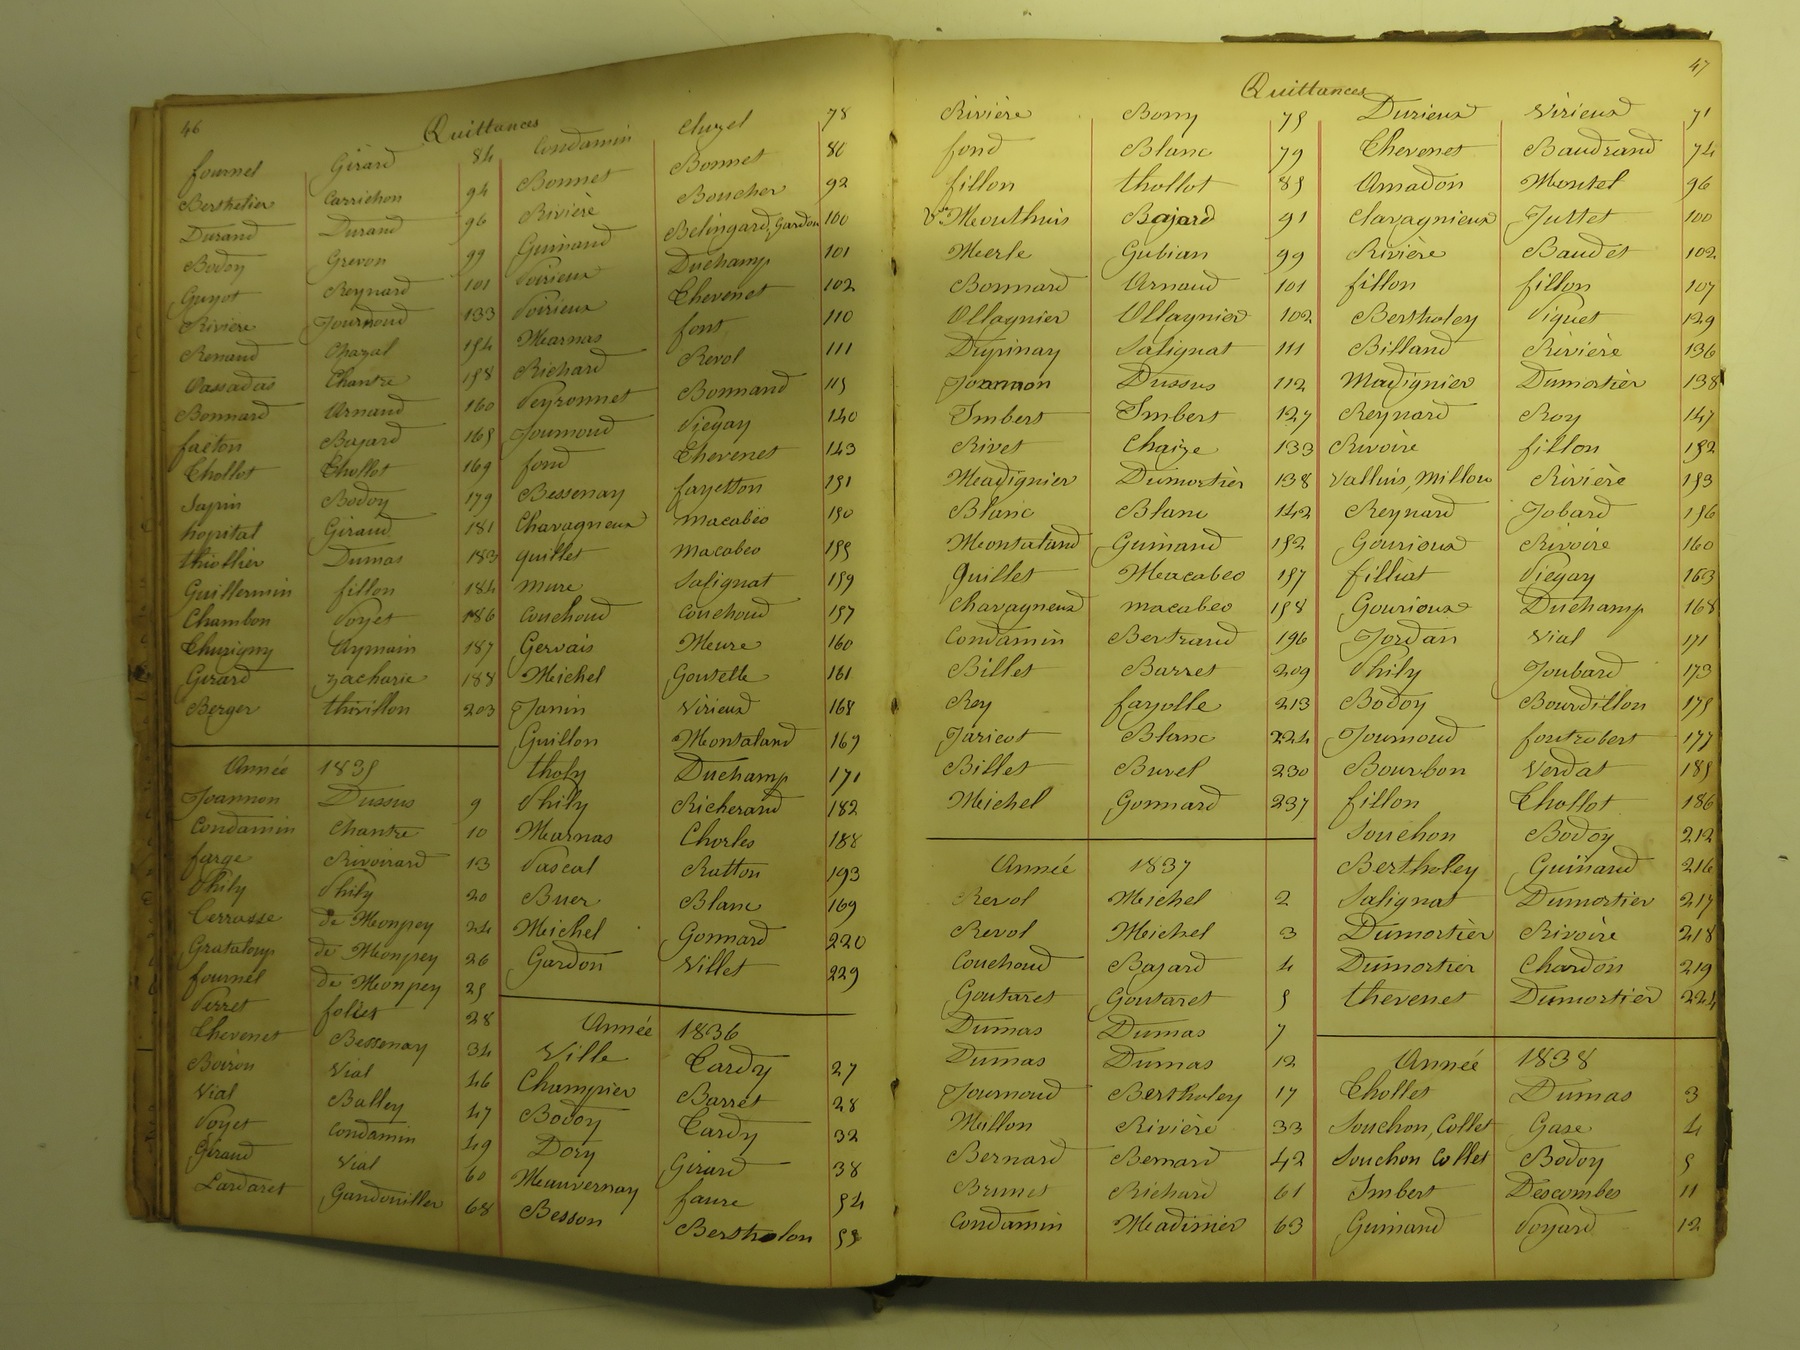 46
Quittances
fournel Girard 84
Berthelier Carrichon 94
Durand Durand 96
Bodoy Grevon 99
Guyot Reynard 101
Rivière Journoud 133
Renaud Chazal 154
Vassadas Chantre 158
Bonnard Arnaud 160
faëton Bajard 165
Thollot Thollot 169
Sapin Bodoy 179
hopital Giraud 181
thiollier Dumas 183
Guillermin fillon 184
Chambon Voyet 186
Thurigny Aymain 187
Girard Zacharie 188
Berger thivillon 203
Année 1835
Joannon Dussus 9
Condamin Chantre 10
farge Rivoirard 13
Phily Phily 20
Terrasse de Monpey 24
Grataloup de Monpey 26
fournel de Monpey 25
Perret follet 28
Thevenet Bessenay 34
Boiron Vial 46
Vial Balley 47
Voyet Condamin 49
Giraud Vial 60
Lardaret Gandouiller 68
Condamin Cluzel 78
Bonnet Bonnet 86
Rivière Boucher 92
Guinand Belingard, Gardon 100
Voirieux Duchamp 101
Voirieux Thevenet 102
Marnas font 110
Richard Revol 111
Peyronnet Bonnand 115
Journoud Piegay 140
fond Thevenet 143
Bessenay fayetton 151
Chavagneux macabéo 150
quillet macabeo 155
mure Salignat 159
Couchoud Couchoud 157
Gervais Meure 160
Michel Goutelle 161
Janin Virieux 168
Guillon Montaland 169
tholy Duchamp 171
Phily Richerand 182
Marnas Charles 188
Pascal Ratton 193
Buer Blanc 169
Michel Gonnard 220
Gardon Villet 229
Année 1836
Ville Tardy 27
Champier Barret 28
Bodoy Tardy 32
Dory Girard 38
Mauvernay faure 54
Besson Bertholon 55
47
Quittances
Rivière Bony 75
fond Blanc 79
fillon thollot 85
Vve Mouthuis Bajard 91
Merle Gubian 99
Bonnard Arnaud 101
Ollagnier Ollagnier 102
Dupinay Salignat 111
Joannon Dussus 112
Imbert Imbert 127
Rivet Chaize 133
Madignier Dumortier 138
Blanc Blanc 142
Montaland Guinand 152
Quillet Macabeo 157
Chavagneux macabeo 158
Condamin Bertrand 196
Billet Barret 209
Rey fayolle 213
Jaricot Blanc 224
Billet Burel 230
Michel Gonnard 237
Année 1837
Revol Michel 2
Revol Michel 3
Couchoud Bajard 4
Goutaret Goutaret 5
Dumas Dumas 7
Dumas Dumas 12
Journoud Bertholey 17
Mullon Rivière 33
Bernard Bernard 42
Brunet Richard 61
Condamin Madinier 63
Durieux Virieux 71
Thevenet Baudrand 74
Amadon Montel 96
Clavagnieux Juttet 100
Rivière Baudet 102
fillon fillon 107
Bertholey Piquet 129
Billand Rivière 136
Madignier Dumortier 138
Reynard Roy 147
Rivoire fillon 152
Valluis, Millou Rivière 153
Reynard Jobard 156
Gourioux Rivoire 160
filliat Piegay 163
Gourioux Duchamp 168
Jordan Vial 171
Phily Joubard 173
Bodoy Bourdillon 175
Journoud fontrobert 177
Bourbon Verdat 185
fillon Thollot 186
Souchon Bodoy 212
Bertholey Guinand 216
Salignat Dumortier 217
Dumortier Rivoire 218
Dumortier Chardon 219
thevenet Dumortier 224
Année 1838
Thollet Dumas 3
Souchon, Collet Gase 4
Souchon Collet Bodoy 5
Imbert Descombes 11
Guinand Voyard 12